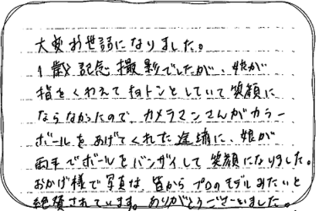 大変お世話になりました。
1歳記念撮影でしたが、娘が
指をくわえてキョトンとしていて笑顔に
ならなかったので、カメラマンさんがカラー
ボールをあげてくれた途端に、娘が
両手でボールをバンザイして笑顔になりました。
おかげ様で写真は、皆からプロのモデルみたいと
絶賛されています。ありがとうございました。